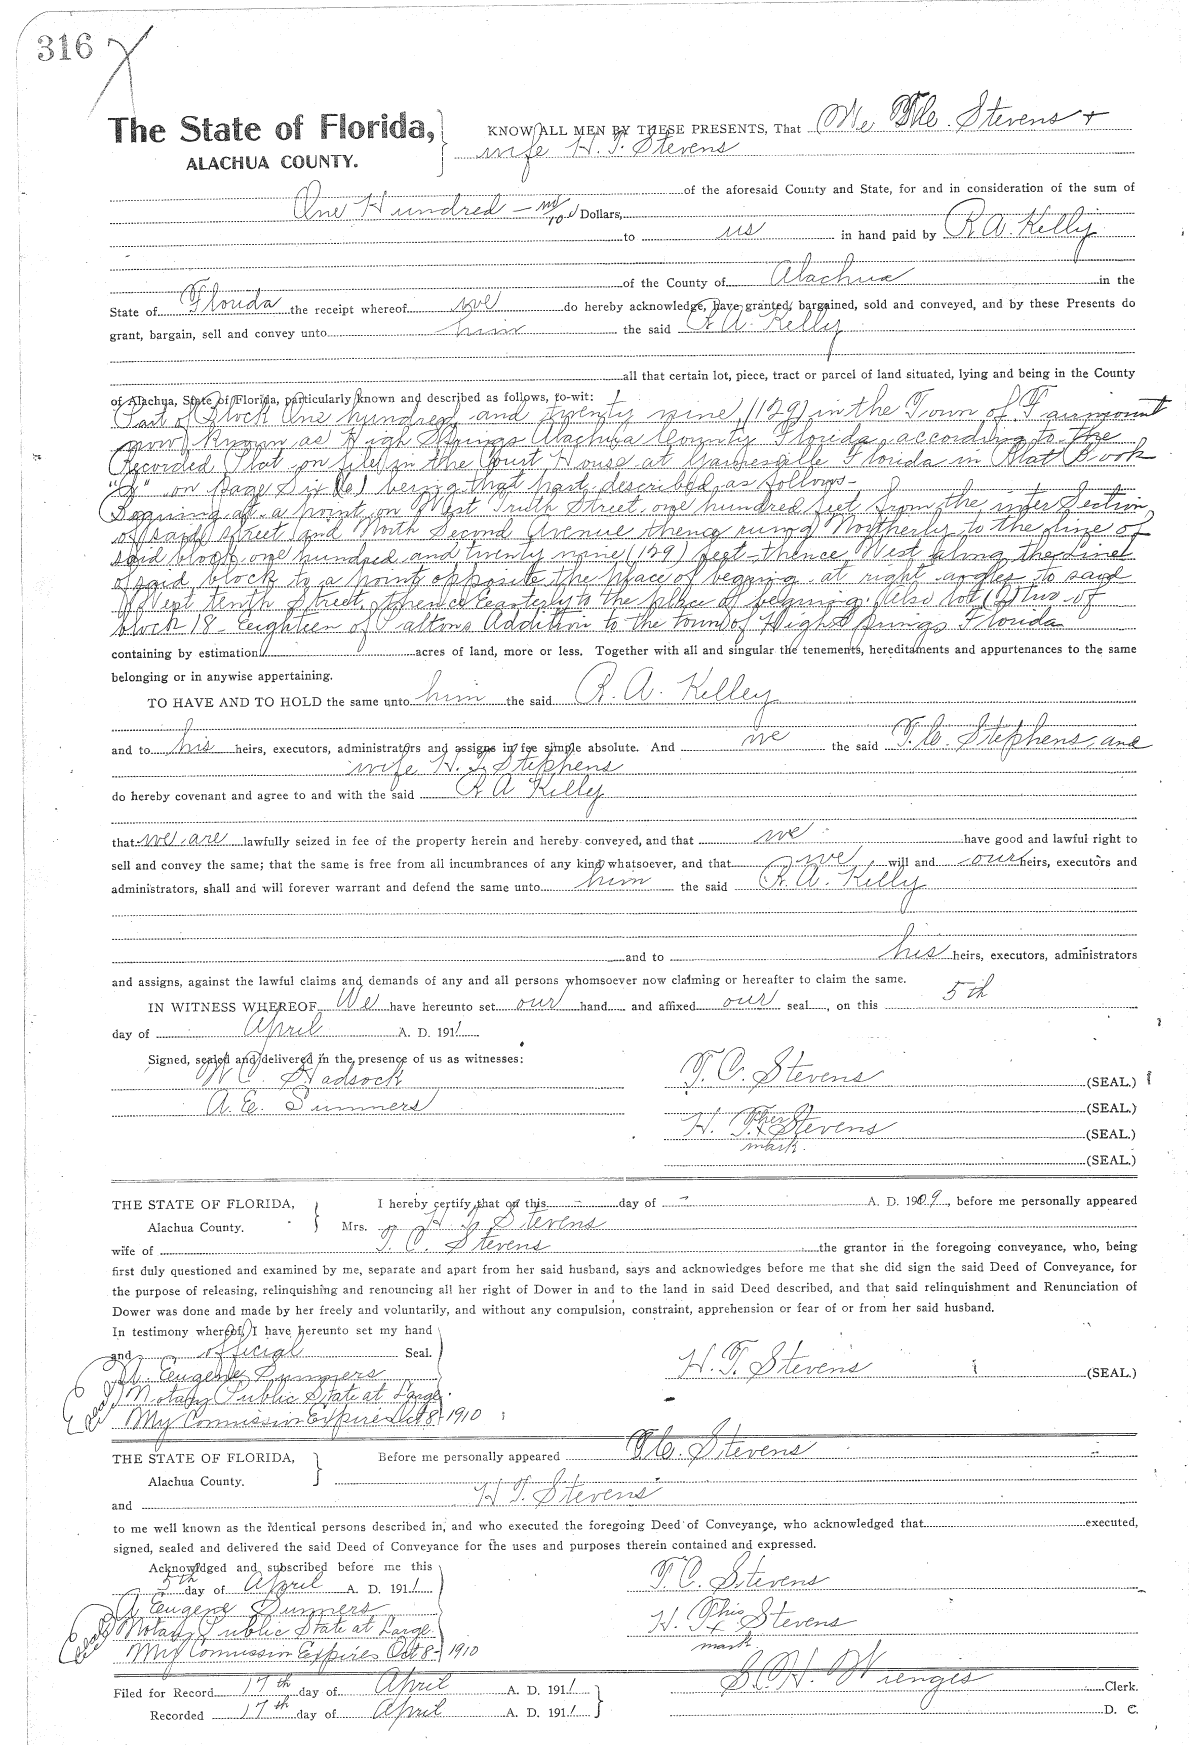 316 X
The State of Florida, KNOW ALL MEN BY THESE PRESENTS, That We T. C. Stevens +
ALACHUA COUNTY. wife H. T. Stevens
of the aforesaid County and State, for and in consideration of the sum of
One Hundred — no/100 Dollars,
to us in hand paid by R. A. Kelly
of the County of Alachua in the
State of Florida the receipt whereof we do hereby acknowledge, have granted, bargained, sold and conveyed, and by these Presents do
grant, bargain, sell and convey unto him the said R. A. Kelly
all that certain lot, piece, tract or parcel of land situated, lying and being in the County
of Alachua, State of Florida, particularly known and described as follows, to-wit:
Part of Block One hundred and twenty nine (129) in the Town of Fairmount
now known as High Springs Alachua County Florida, according to the
Recorded Plat on file in the Court House at Gainesville Florida in Plat Book
"A" on page Six (6) being that part described as follows-
Begining at a point on West Tenth Street, one hundred feet from the inter Section
of said Street and North Second Avenue thence runing Northerly to the line of
said block one hundred and twenty nine (129) feet - thence West along the line
of said block to a point opposite the place of begining at right angles to said
West tenth Street, thence Easterly to the place of begining. Also lot (2) two of
block 18 - Eighteen of Daltons Addition to the town of High Springs Florida
containing by estimation acres of land, more or less. Together with all and singular the tenements, hereditaments and appurtenances to the same
belonging or in anywise appertaining.
TO HAVE AND TO HOLD the same unto him the said R. A. Kelley
and to his heirs, executors, administrators and assigns in fee simple absolute. And we the said T. C. Stephens, and
wife H. T. Stephens
do hereby covenant and agree to and with the said R A Kelly
that we are lawfully seized in fee of the property herein and hereby conveyed, and that we have good and lawful right to
sell and convey the same; that the same is free from all incumbrances of any kind whatsoever, and that we will and our heirs, executors and
administrators, shall and will forever warrant and defend the same unto him the said R. A. Kelly
and to his heirs, executors, administrators
and assigns, against the lawful claims and demands of any and all persons whomsoever now claiming or hereafter to claim the same.
IN WITNESS WHEREOF We have hereunto set our hand and affixed our seal, on this 5th
day of April A. D. 1911.
Signed, sealed and delivered in the presence of us as witnesses:
W C. Hadsock T. C. Stevens (SEAL.)
A. E. Summers (SEAL.)
H. T. her x mark Stevens (SEAL.)
(SEAL.)
THE STATE OF FLORIDA, I hereby certify that on this - day of - A. D. 1909, before me personally appeared
Alachua County. Mrs. H T. Stevens
wife of T. C. Stevens the grantor in the foregoing conveyance, who, being
first duly questioned and examined by me, separate and apart from her said husband, says and acknowledges before me that she did sign the said Deed of Conveyance, for
the purpose of releasing, relinquishing and renouncing all her right of Dower in and to the land in said Deed described, and that said relinquishment and Renunciation of
Dower was done and made by her freely and voluntarily, and without any compulsion, constraint, apprehension or fear of or from her said husband.
In testimony whereof, I have hereunto set my hand
and official Seal. H. T. Stevens (SEAL.)
A. Eugene Summers
(Seal) Notary Public State at Large.
My Commission Expires Oct 8- 1910
THE STATE OF FLORIDA, Before me personally appeared T. C. Stevens
Alachua County.
and H T. Stevens
to me well known as the identical persons described in, and who executed the foregoing Deed of Conveyance, who acknowledged that executed,
signed, sealed and delivered the said Deed of Conveyance for the uses and purposes therein contained and expressed.
Acknowldged and subscribed before me this T. C. Stevens
5th day of April A. D. 1911.
A Eugene Summers H. T. his x mark Stevens
(Seal) Notary Public State at Large.
My Comissin Expires Oct 8- 1910
Filed for Record 17th day of April A. D. 1911. S. H. Wienges Clerk.
Recorded 17th day of April A. D. 1911. D. C.